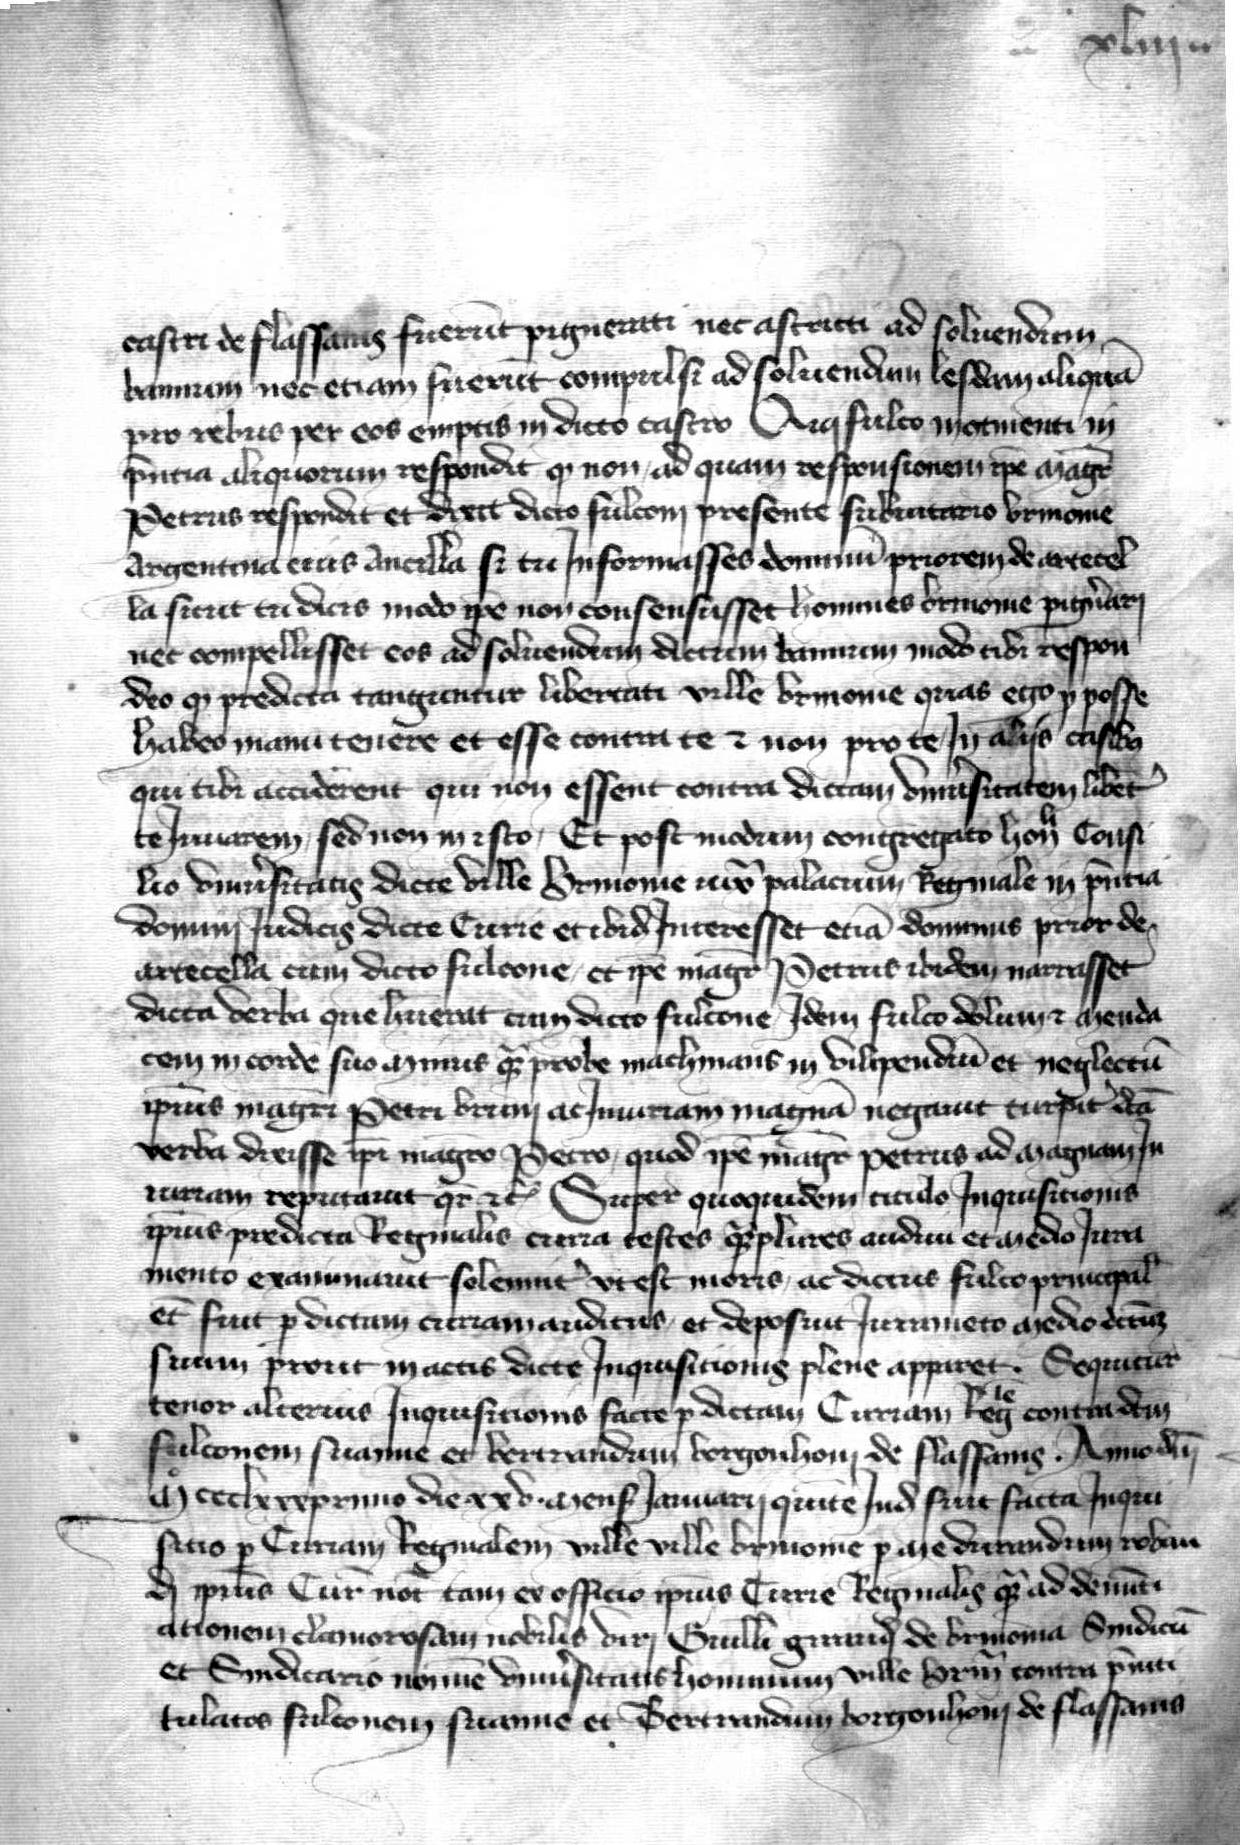 xliiii
castri de flassanis fuerūt pignerati nec astricti ad soluendum
bannum nec etiam fuerūt compulsi ad soluendum lesdam aliquā
pro rebus per eos emptis in dicto castro Qui fulco in
pñtia aliquorum respondit qͥ non ad quam responsionem ipē magr̄
Petrus respondit et dixit dicto fulconj presente brinonie
Argentina eius Ancilla si tu Informasses dominū priorem de artecel
la sicut tu dicis modo ipē non consensisset homines brinonie pign̄arj
nec compellisset eos ad soluendum dictum bannum modo tibi respon
deo qͥ predicta tanguntur libertati ville brinonie quas ego p posse
habeo manutenere et esse contra te ⁊ non pro te In alijs casibȝ
qui tibi acciderent qui non essent contra dictam vniu̾sitatem libet̾
te Iuuarem sed non in isto Et post modum congregato hoñ Consi
lio vniu̾sitatis dicte ville Brinonie iux̄ palacium Reginale in pñtia
dominj Judicis dicte Curie et ibid̄ Interesset etiā dominus prior de
artecella cum dicto fulcone et ipē magr̄ Petrus ibidem narrasset
dicta verba que huerat cum dicto fulcone Idem fulco dolum ⁊ menda
cem in corde suo minus qͣ probe machinans in vilipendiū et neglectū
ipīus magr̄i Petri brunj ac Iniuriam magnā negauit turpit̾ dc̄a
verba dixisse ip̄i magr̄o Petro quod ipē magr̄ petrus ad magnam In
iuriam reputauit qr̄ ⁊c̄ Super quoquidem titulo Inquisitionis
ipīus predicta Reginalis curia testes qͣplures audiui et medio Iura
mento examinauit solemnit̾ vt est moris ac dictus fulco principal̄
et̄ fuit p dictam curiam auditus et deposuit Iuramēto medio dictūm
suum prout in actis dicte Inquisitionis plene apparet . Sequitur
tenor alterius Inquisitionis facte p dictam Curiam Reḡle contra dc̄m
fulconem suanne et bertrandum borgonhonj de flassanis . Anno dñj
M ccclxxxprimo die xxv mens̄ Ianuarij quīte Ind̄ fuit facta Inqui
sitio p Curiam Reginalem ville ville brinonie p me durandum roban
dj ipīus Cur̄ not̄ tam ex officio ipīus Curie Reginalis qͣ ad denūti
ationem clamorosam nobilis virj Guill̄i giraudj de brinonia Sindicū
et Sindicario nomīe vniu̾sitatis hominum ville brin̄ contra pñti
tulatos fulconem suanne et Bertrandum borgonhonj de flassanis